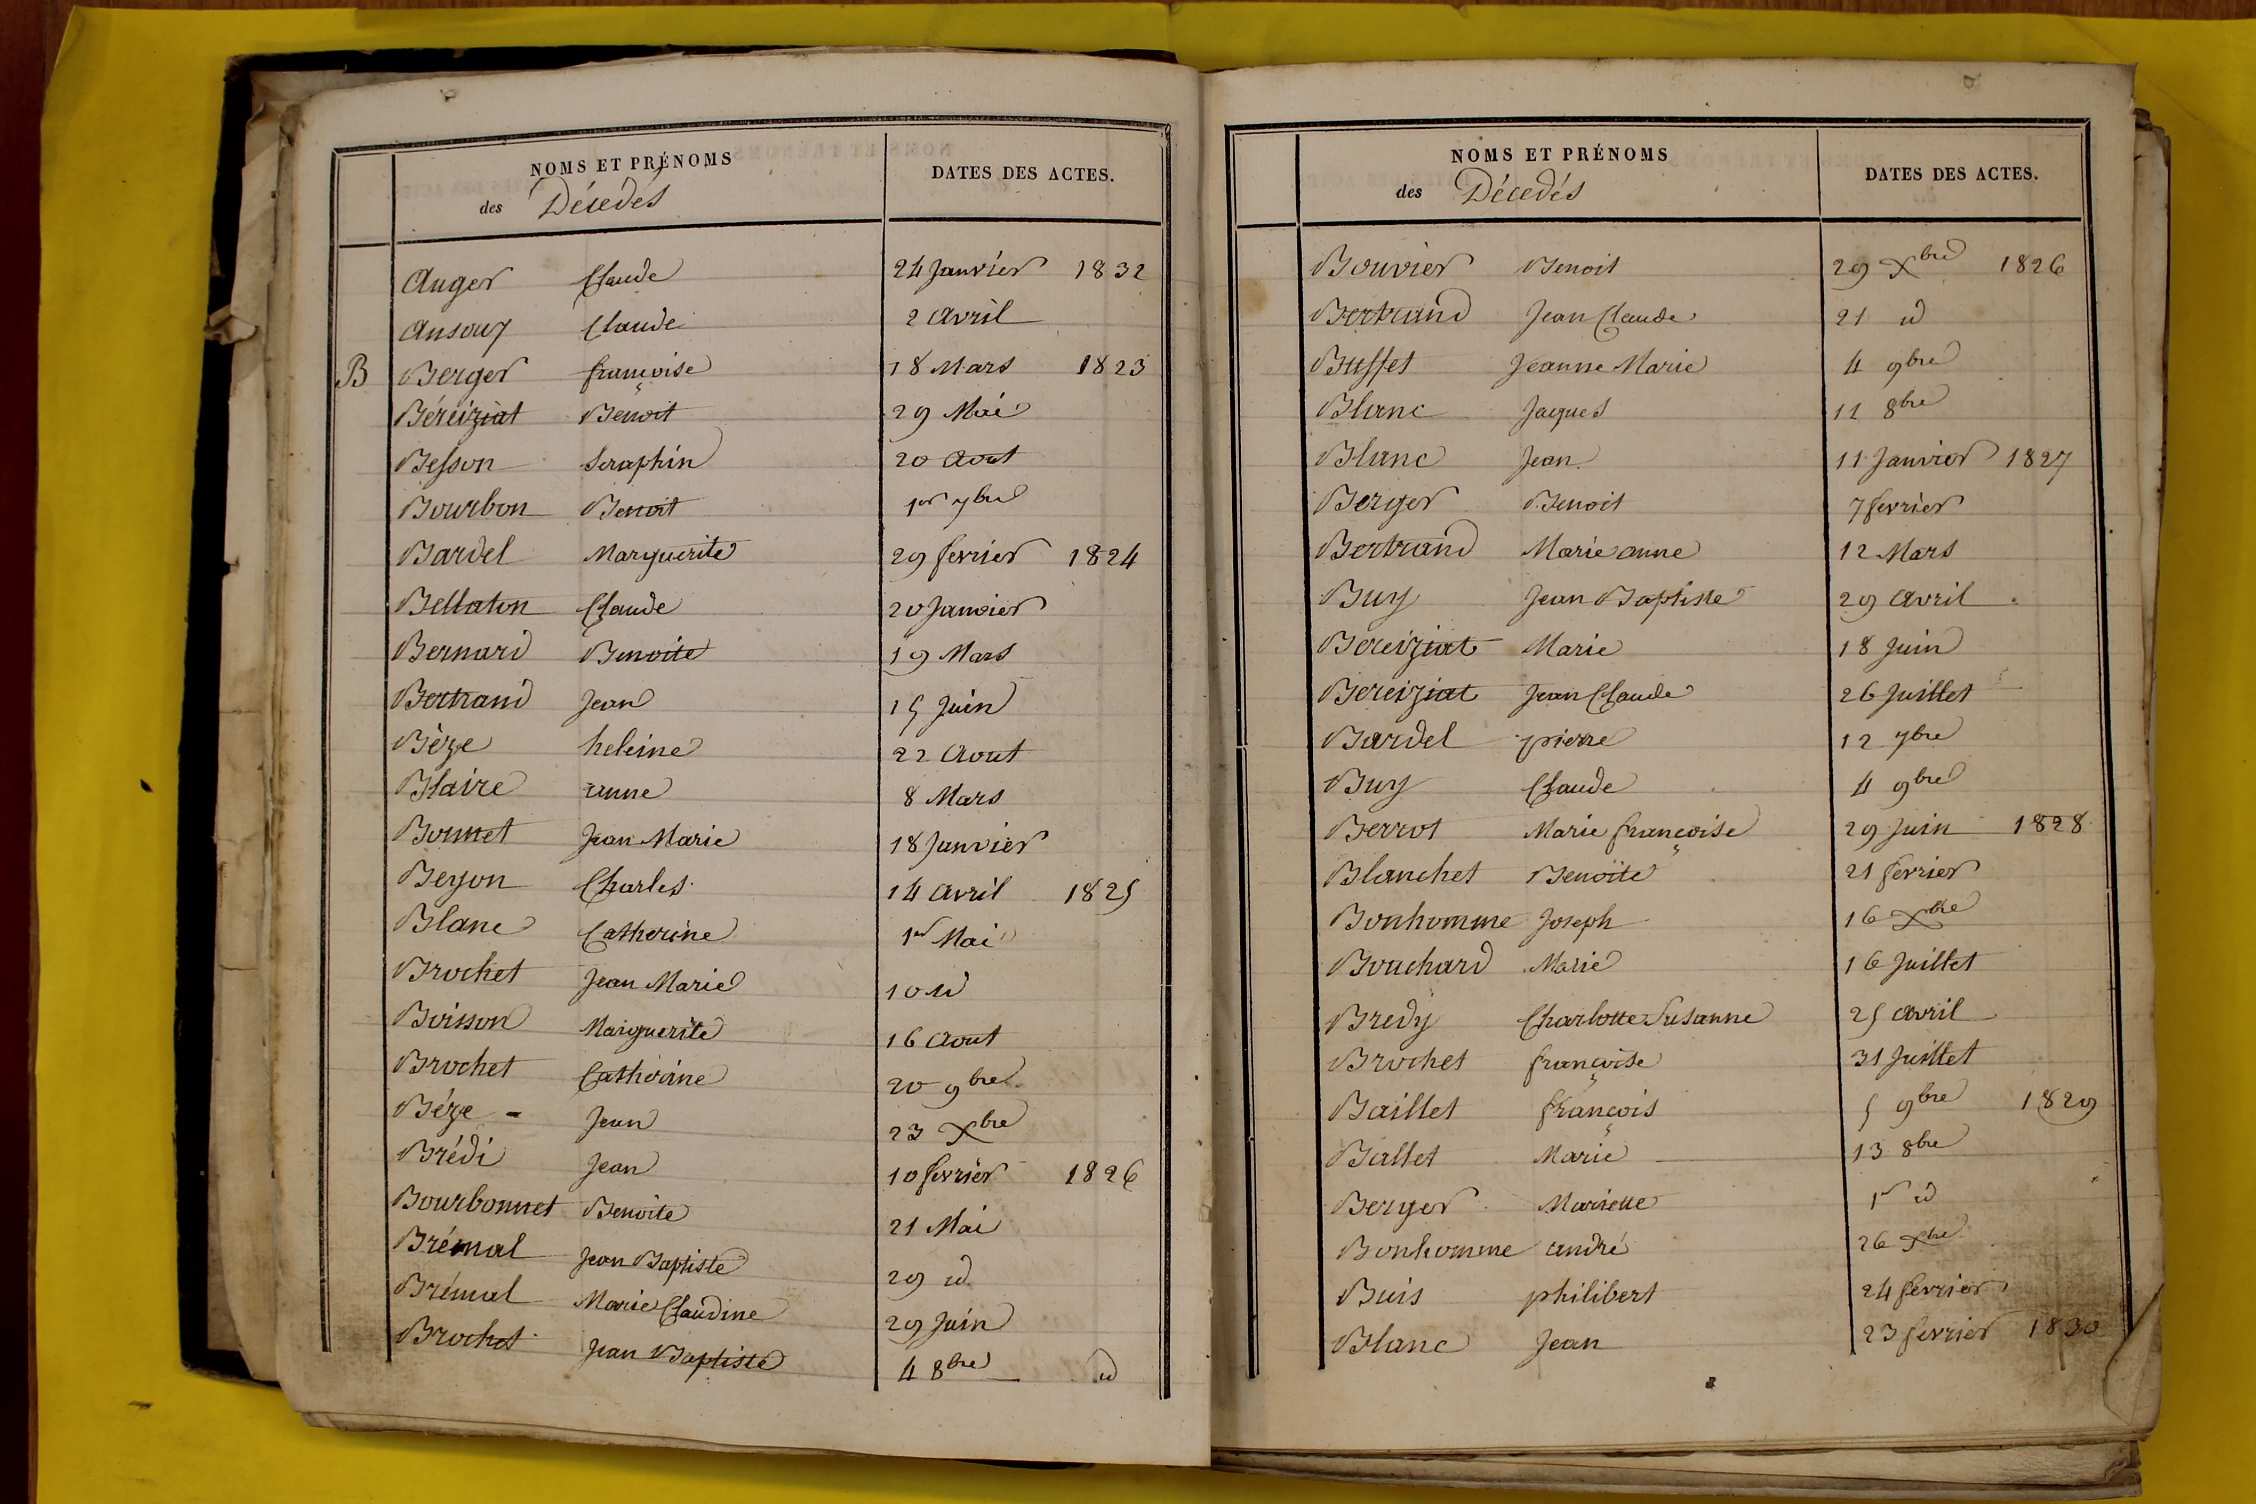 NOMS ET PRÉNOMS
des Décédés
DATES DES ACTES.
Auger Claude 24 Janvier 1832
Ansouy Claude 2 Avril
B Berger françoise 18 Mars 1823
Béreiziat Benoit 29 Mai
Besson Seraphin 20 Aout
Bourbon Benoit 1er 7bre
Bardel Marguerite 29 fevrier 1824
Bellaton Claude 20 Janvier
Bernard Benoite 19 Mars
Bertrand Jean 15 Juin
Bèze heleine 22 Aout
Blaire anne 8 Mars
Bonnet Jean Marie 18 Janvier
Beyon Charles 14 Avril 1825
Blanc Catherine 1er Mai
Brochet Jean Marie 10 id
Boisson Marguerite 16 Aout
Brochet Catherine 20 9bre
Béze - Jean 23 Xbre
Brédi Jean 10 fevrier 1826
Bourbonnet Benoite 21 Mai
Brémal Jean Baptiste 29 id
Brémal Marie Claudine 29 Juin
Brochet Jean Baptiste 4 8bre id
NOMS ET PRÉNOMS
des Décedés
DATES DES ACTES.
Bouvier Benoit 29 Xbre 1826
Bertrand Jean Claude 21 id
Buffet Jeanne Marie 4 9bre
Blanc Jaques 11 8bre
Blanc Jean 11 Janvier 1827
Berger Benoit 7 fevrier
Bertrand Marie anne 12 Mars
Buy Jean Baptiste 29 Avril
Bereiziat Marie 18 Juin
Bereiziat Jean Claude 26 Juillet
Bardel pierre 12 7bre
Buy Claude 4 9bre
Berrot Marie françoise 29 Juin 1828
Blanchet Benoïte 21 fevrier
Bonhomme Joseph 16 Xbre
Bouchard Marie 16 Juillet
Bredy Charlotte Susanne 25 Avril
Brochet françoise 31 Juillet
Baillet françois 5 9bre 1829
Ballet Marie 13 8bre
Berger Mariette 1er id
Bonhomme andré 26 Xbre
Buis philibert 24 fevrier
Blanc Jean 23 fevrier 1830